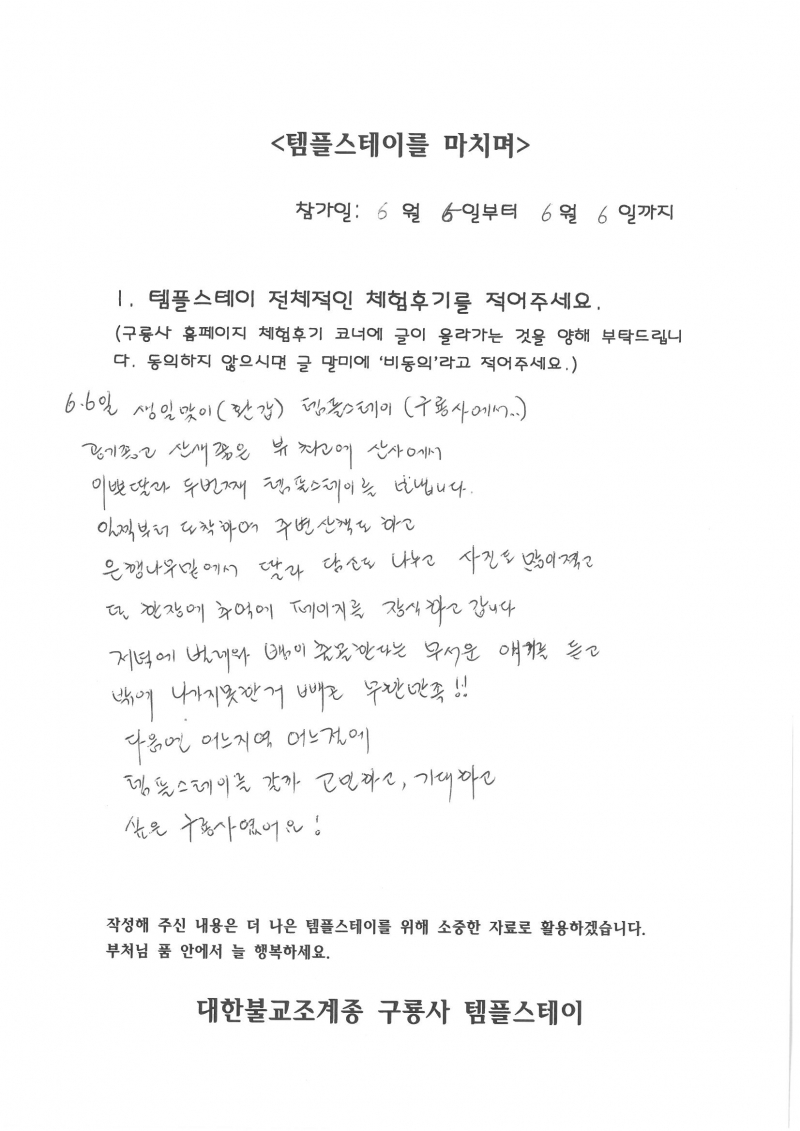 <템플스테이를 마치며>
참가일: 6 월 6일부터 6월 6 일까지
1. 템플스테이 전체적인 체험후기를 적어주세요.
(구룡사 홈페이지 체험후기 코너에 글이 올라가는 것을 양해 부탁드립니
다. 동의하지 않으시면 글 말미에 '비동의'라고 적어주세요.)
6.6일 생일맞이(환갑) 템플스테이 (구룡사에서..)
공기좋고 산새좋은 뷰 최고에 산사에서
이쁜딸과 두번째 템플스테이를 보냅니다.
일찍부터 도착하여 주변산책도 하고
은행나무밑에서 딸과 담소도 나누고 사진도 많이찍고
또 한장에 추억에 페이지를 장식하고 갑니다
저녁에 벌레와 뱀이 출몰한다는 무서운 얘기를 듣고
밖에 나가지못한거 빼고 무한만족!!
다음엔 어느지역 어느절에
템플스테이를 갈까 고민하고, 기대하고
싶은 구룡사였어요!
작성해 주신 내용은 더 나은 템플스테이를 위해 소중한 자료로 활용하겠습니다.
부처님 품 안에서 늘 행복하세요.
대한불교조계종 구룡사 템플스테이